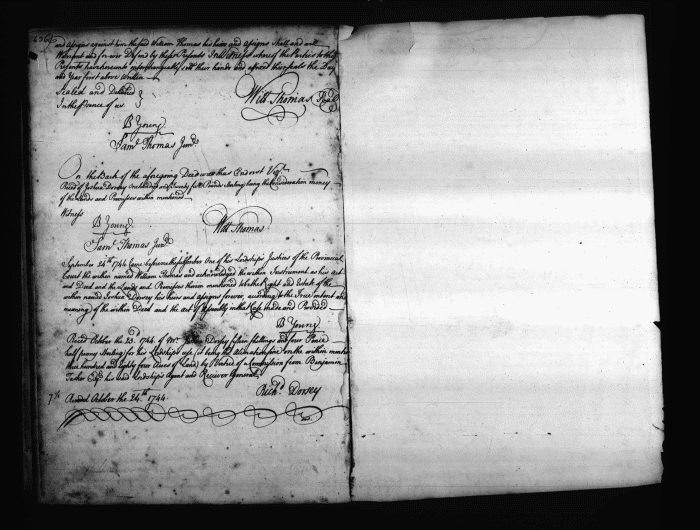 and assigns against him the said William Thomas his heirs and assigns shall and will
Warrant and forever Defend by these Presents In Witness whereof the Parties to these
Presents have hereunto interchangeably sett their hands and affixed their seals the Day
and Year first above Written
Sealed and Delivered
In the presence of us
Will Thomas Seal
B Young
Saml. Thomas Junr.
On the Back of the aforegoing Deed was thus Endorst Vizt.
Reced of Joshua Dorsey One hundred and Twenty Pounds Sterling being the Consideration money
of the Lands and Premisses within mentioned
Witness
B Young
Will Thomas
Saml. Thomas Junr.
September 24th 1744 Came before me the subscriber One of his Lordships Justices of the Provincial
Court the within named William Thomas and acknowledged the within Instrument as his act
and Deed and the Lands and Premisses therein mentioned to be the Right and Estate of the
within named Joshua Dorsey his heirs and assigns forever according to the True intent and
meaning of the within Deed and the act of assembly in that Case made and Provided
B Young
Reced October the 23. 1744 of Mr. Dorsey fifteen shillings and four Pence
half penny Sterling for his Lordships use it being the Alienation fine on the within mentioned
three hundred and Eighty four acres of Land by Virtue of a Commission from Benjamin
Tasker Esqr. his said Lordships Agent and Receiver General
Richd. Dorsey
Recorded October the 24th. 1744.